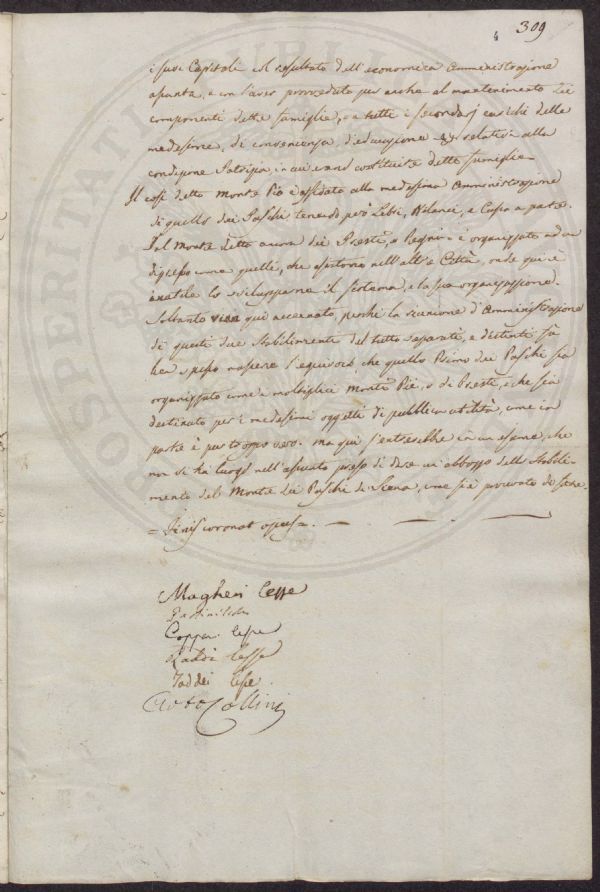 4 309
i suoi Capitali col resultato dell'economica Amministrazione
apunta, e con l'aver provveduto pur anche al mantenimento dei
componenti dette famiglie, e a tutti i secondarj carichi delle
medesime, di convenienza, d'educazione relativi alla
condizione Patrizia in cui erano costituite dette famiglie =
Il così detto Monte Pio è affidato alla medesima Amministrazione
di quello dei Paschi tenendo però Libri, Bilanci, e Cassa a parte.
Tal Monte detto ancora dei Presti, o Pegni è organizzato ad un
dipresso come quelli, che esistono nell'altre Città, onde qui è
inutile lo svilupparne il sistema, e la sua organizzazione.
Soltanto viene qui accennato, perchè la riunione d'Amministrazione
di questi due Stabilimenti del tutto separati, e distinti fà
ben spesso nascere l'equivoco che quello Primo dei Paschi sia
organizzato come i moltiplici Monti Pii, o di Presti, e che sia
destinato per i medesimi oggetti di pubblica utilità, come in
parte è pur troppo vero. Ma qui s'entrerebbe in un esame, che
non si ha luogo nell'assunto preso di dare un abbozzo dello Stabili-
mento del Monte dei Paschi di Siena, come si è procurato di fare.
= Finis coronat opus =. —
Magheri Cesse
Coppi Cesse
Landi Cesse
Taddei Cesse
Collini
PROSPERITATI PUBLI